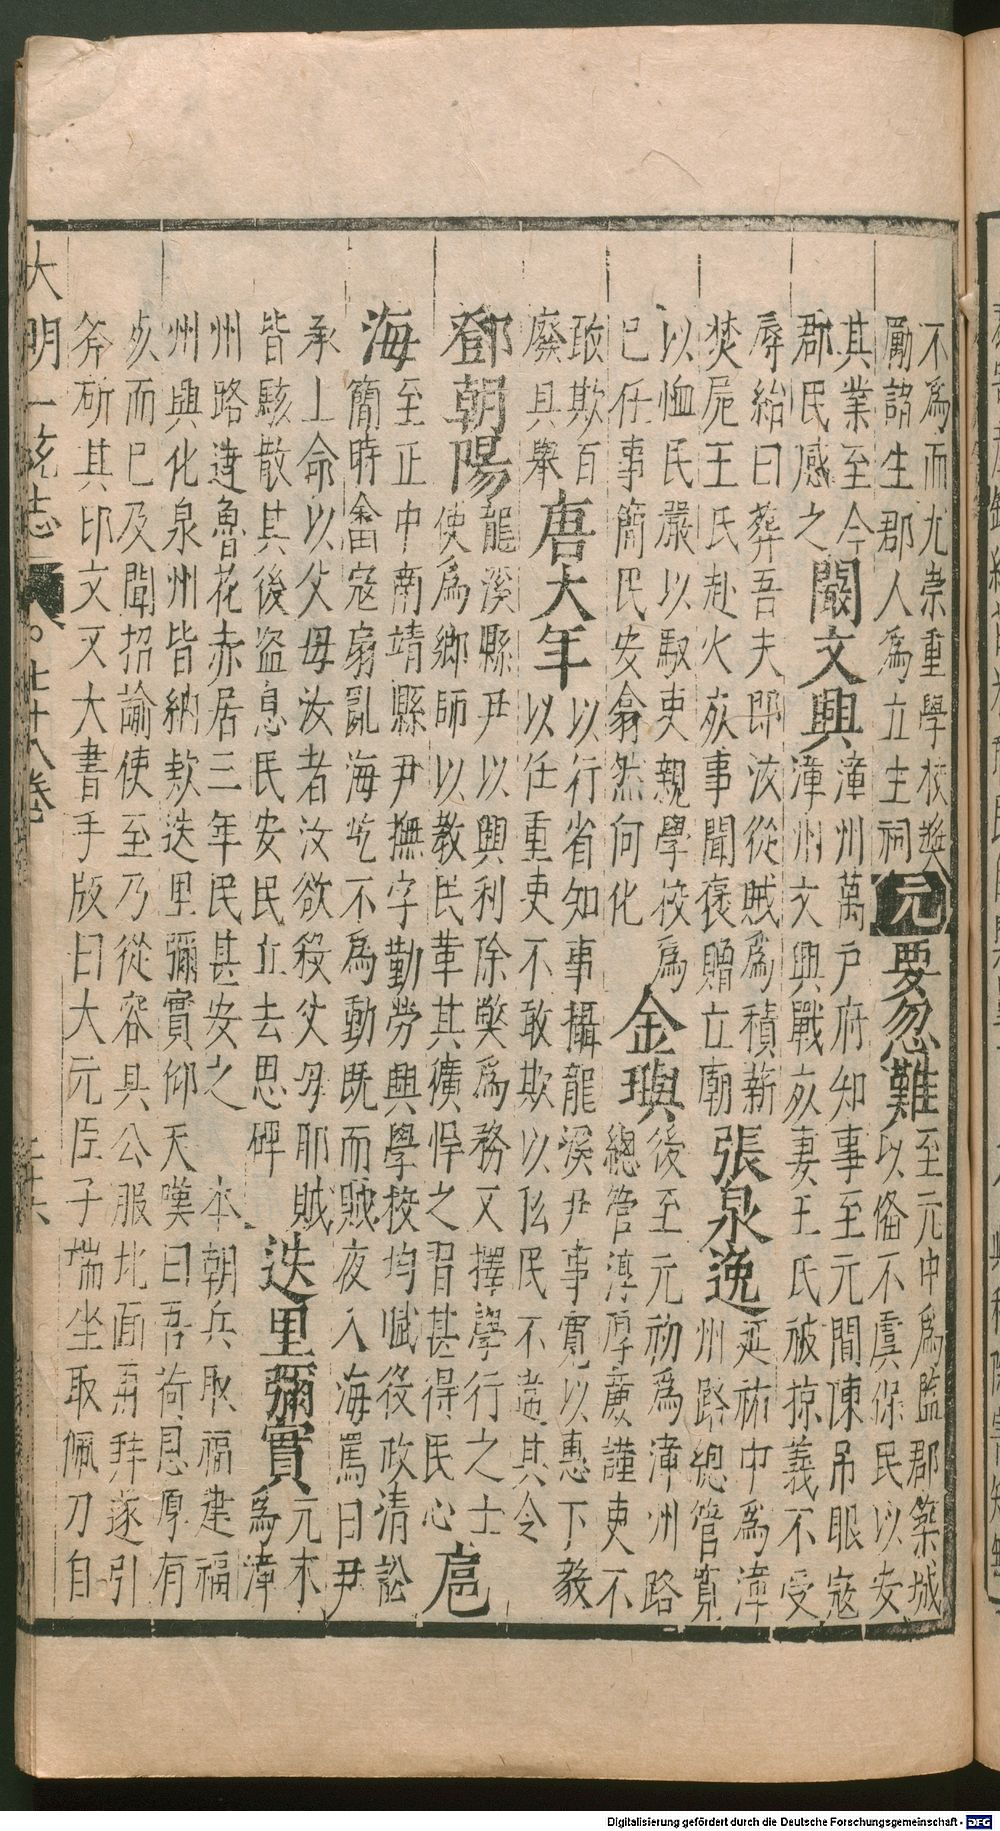 不爲而尤崇重學校奬
勵諸生郡人爲立生祠元要忽難至元中爲監郡築城
以備不虞保民以安
其業至今
郡民感之闞文興漳州萬戶府知事至元間陳吊眼寇
漳州文興戰死妻王氏被掠義不受
辱紿曰葬吾夫即汝從賊爲積薪
焚屍王氏赴火死事聞褒贈立廟張泉逸延祐中爲漳
州路總管寬
以恤民嚴以馭吏親學校爲
巳任事簡民安翕然向化金璵後至元初爲漳州路
總管淳厚廉謹吏不
敢欺百
廢具舉唐大年以行省知事攝龍溪尹事寬以惠下敎
以任重吏不敢欺以私民不違其令
鄧朝陽龍溪縣尹以興利除弊爲務又擇學行之士
使爲鄉師以教民革其獷悍之習甚得民心扈
海至正中南靖縣尹撫字勤勞興學校均賦役政清訟
簡時畬寇扇亂海屹不爲動既而賊夜入海罵曰尹
承上命以父母汝者汝欲殺父母耶賊
皆駭散其後盜息民安民立去思碑迭里彌實元末
爲漳
州路達魯花赤居三年民甚安之 本朝兵取福建福
州興化泉州皆納欵迭里彌實仰天嘆曰吾荷恩厚有
死而巳及聞招諭使至乃從容具公服北面再拜遂引
斧斫其印文又大書手版曰大元臣子端坐取佩刀自
大明一統志 七十八卷
Digitalisierung gefördert durch die Deutsche Forschungsgemeinschaft - DFG